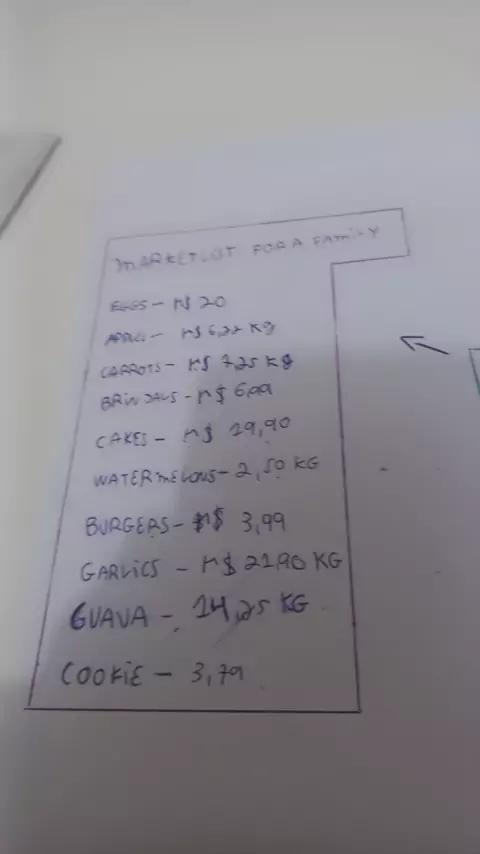 MARKET LIST FOR A FAMILY
EGGS - R$ 20
R$ 6,22 Kg
CARROTS - R$ 7,25 Kg
BRINJALS - R$ 6,99
CAKES - R$ 19,90
WATERMELONS - 2,50 KG
BURGERS - R$ 3,99
GARLICS - R$ 21,90 KG
GUAVA - 14,25 KG
COOKIE - 3,79